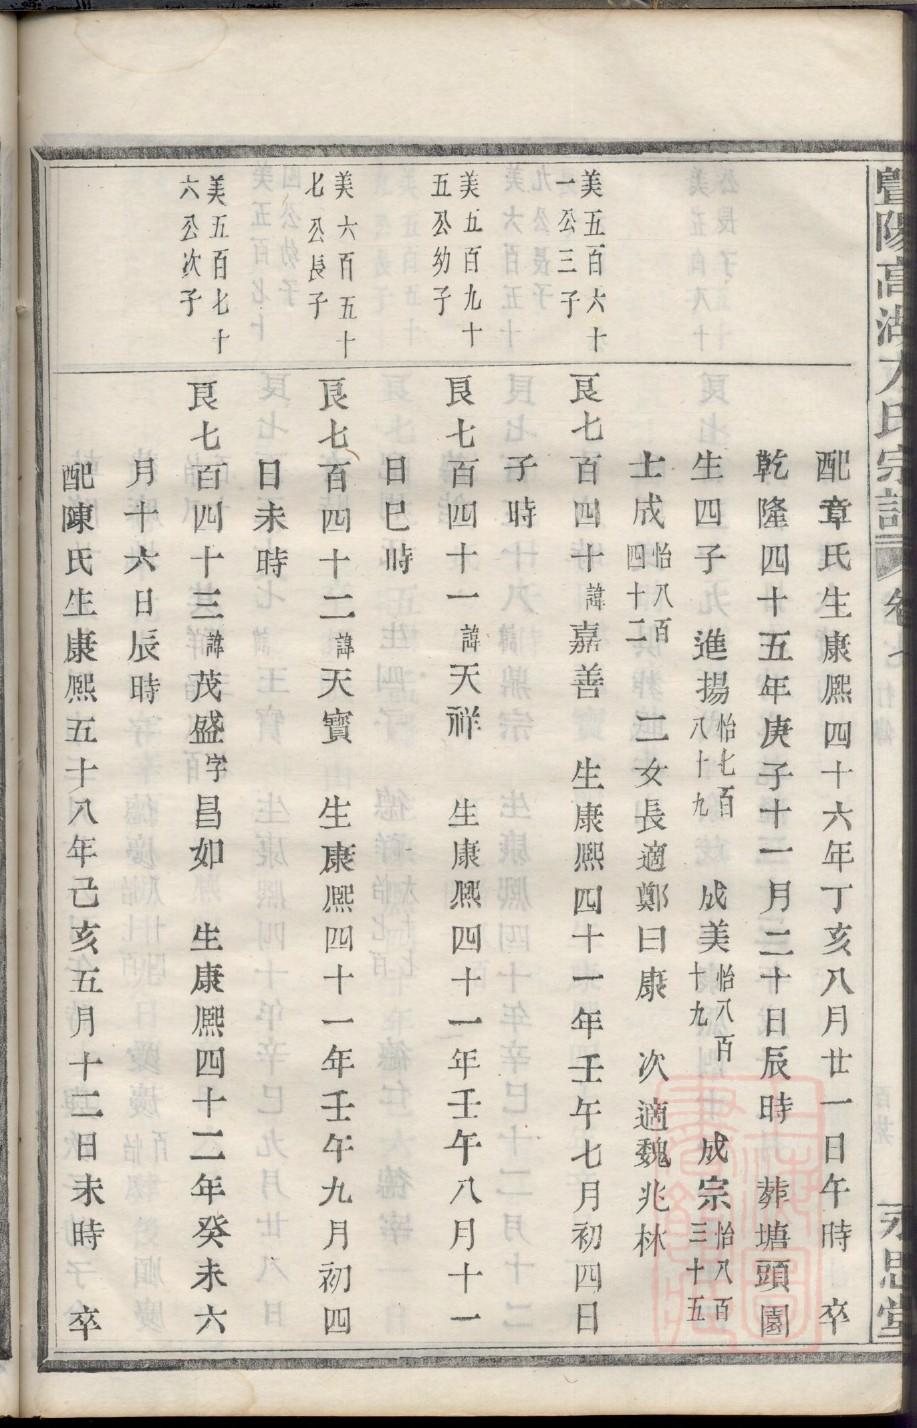 暨陽高湖方氏宗譜 卷七 行傳 永思堂
配章氏生康熙四十六年丁亥八月廿一日午時 卒
乾隆四十五年庚子十一月二十日辰時 葬塘頭園
生四子 進揚怡七百八十九 成美怡八百十九 成宗怡八百三十五
士成怡八百四十二 二女長適鄭日康 次適魏兆林
美五百六十一公三子
艮七百四十諱嘉善 生康熙四十一年壬午七月初四日
子時
美五百九十五公幼子
艮七百四十一諱天祥 生康熙四十一年壬午八月十一
日巳時
美六百五十七公長子
艮七百四十二諱天寶 生康熙四十一年壬午九月初四
日未時
美五百七十六公次子
艮七百四十三諱茂盛字昌如 生康熙四十二年癸未六
月十六日辰時
配陳氏生康熙五十八年己亥五月十二日未時 卒